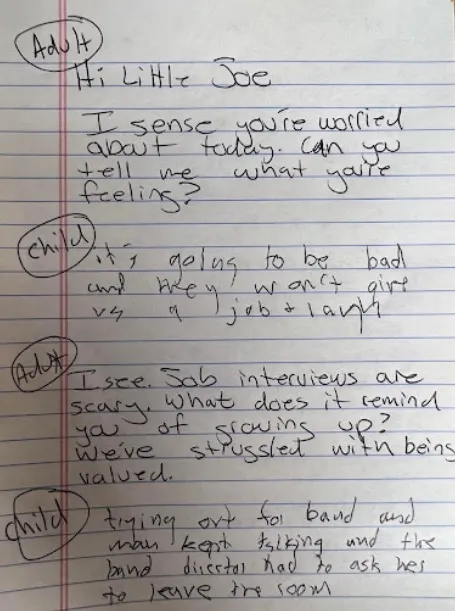 Adult
Hi Little Joe
I sense you're worried
about today. Can you
tell me what you're
feeling?
Child
it's going to be bad
and they won't give
us a job + laugh
Adult
I see. Job interviews are
scary. What does it remind
you of growing up?
We've struggled with being
valued.
child
trying out for band and
mom kept talking and the
band director had to ask her
to leave the room